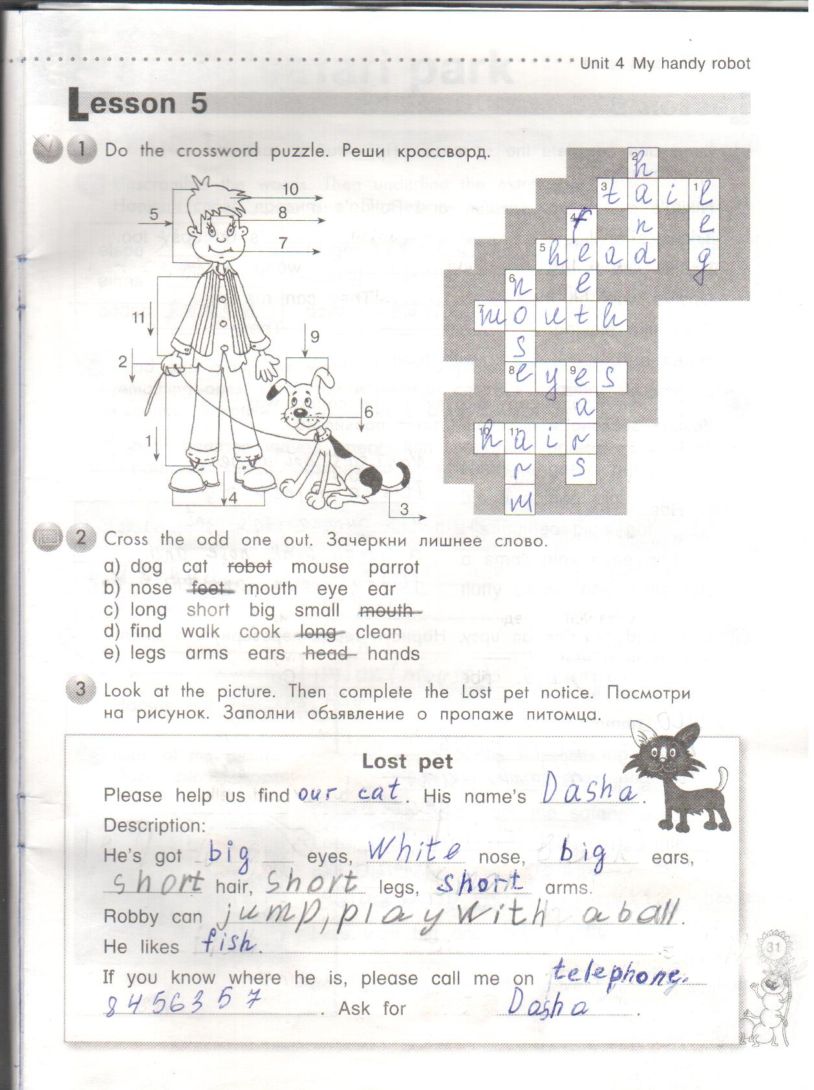 Unit 4 My handy robot
Lesson 5
1 Do the crossword puzzle. Реши кроссворд.
2 h
3 t a i 1 l
4 f n e
5 h e a d g
6 n e
7 m o u t h
s
8 e y 9 e s
a
10 h 11 a i r
r s
m
10
5 8
7
11
9
2
6
1
4
3
2 Cross the odd one out. Зачеркни лишнее слово.
a) dog cat robot mouse parrot
b) nose feet mouth eye ear
c) long short big small mouth
d) find walk cook long clean
e) legs arms ears head hands
3 Look at the picture. Then complete the Lost pet notice. Посмотри
на рисунок. Заполни объявление о пропаже питомца.
Lost pet
Please help us find our cat. His name's Dasha.
Description:
He's got big eyes, white nose, big ears,
short hair, short legs, short arms.
Robby can jump, play with a ball.
He likes fish.
If you know where he is, please call me on telephone.
8456357. Ask for Dasha.
31